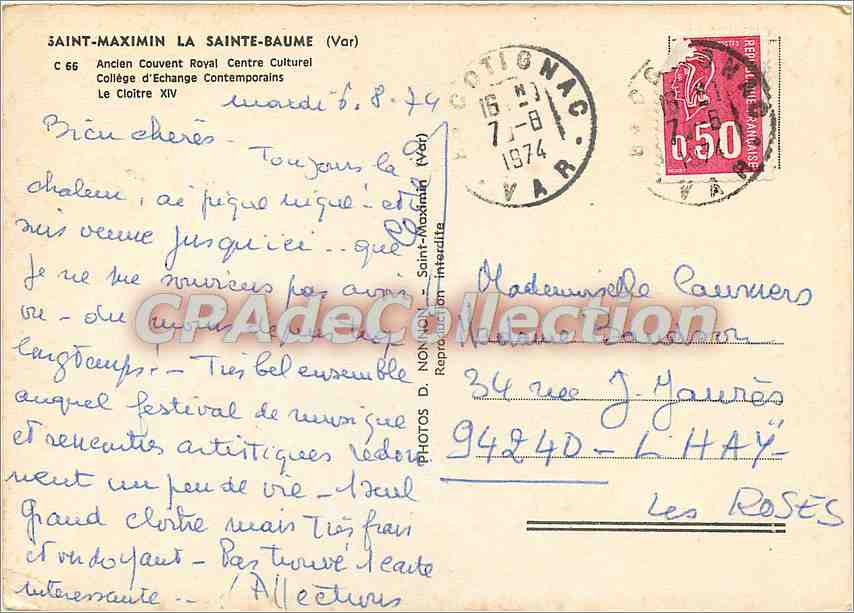 SAINT-MAXIMIN LA SAINTE-BAUME (Var)
C 66 Ancien Couvent Royal Centre Culturel
Collège d'Echange Contemporains
Le Cloître XIV
mardi 6.8.74
Bien chères -
Toujours la
chaleur, ai pique niqué - et
suis venue jusqu'ici .. que
Je ne me souviens pas avoir
vu - du moins depuis
longtemps. - Très bel ensemble
auquel festival de musique
et rencontres artistiques redon
nent un peu de vie - 1 seul
Grand cloître mais très frais
et ondoyant - Pas trouvé 1 carte
intéressante - . Affections
PHOTOS D. NONNON - Saint-Maximin (Var)
Reproduction interdite
COTIGNAC
16 H
7-8
1974
VAR
REPUBLIQUE FRANÇAISE
0,50
CPAdeCollection
Mademoiselle
Madame
34 rue J. Jaurès
94240 - L'HAŸ -
Les ROSES